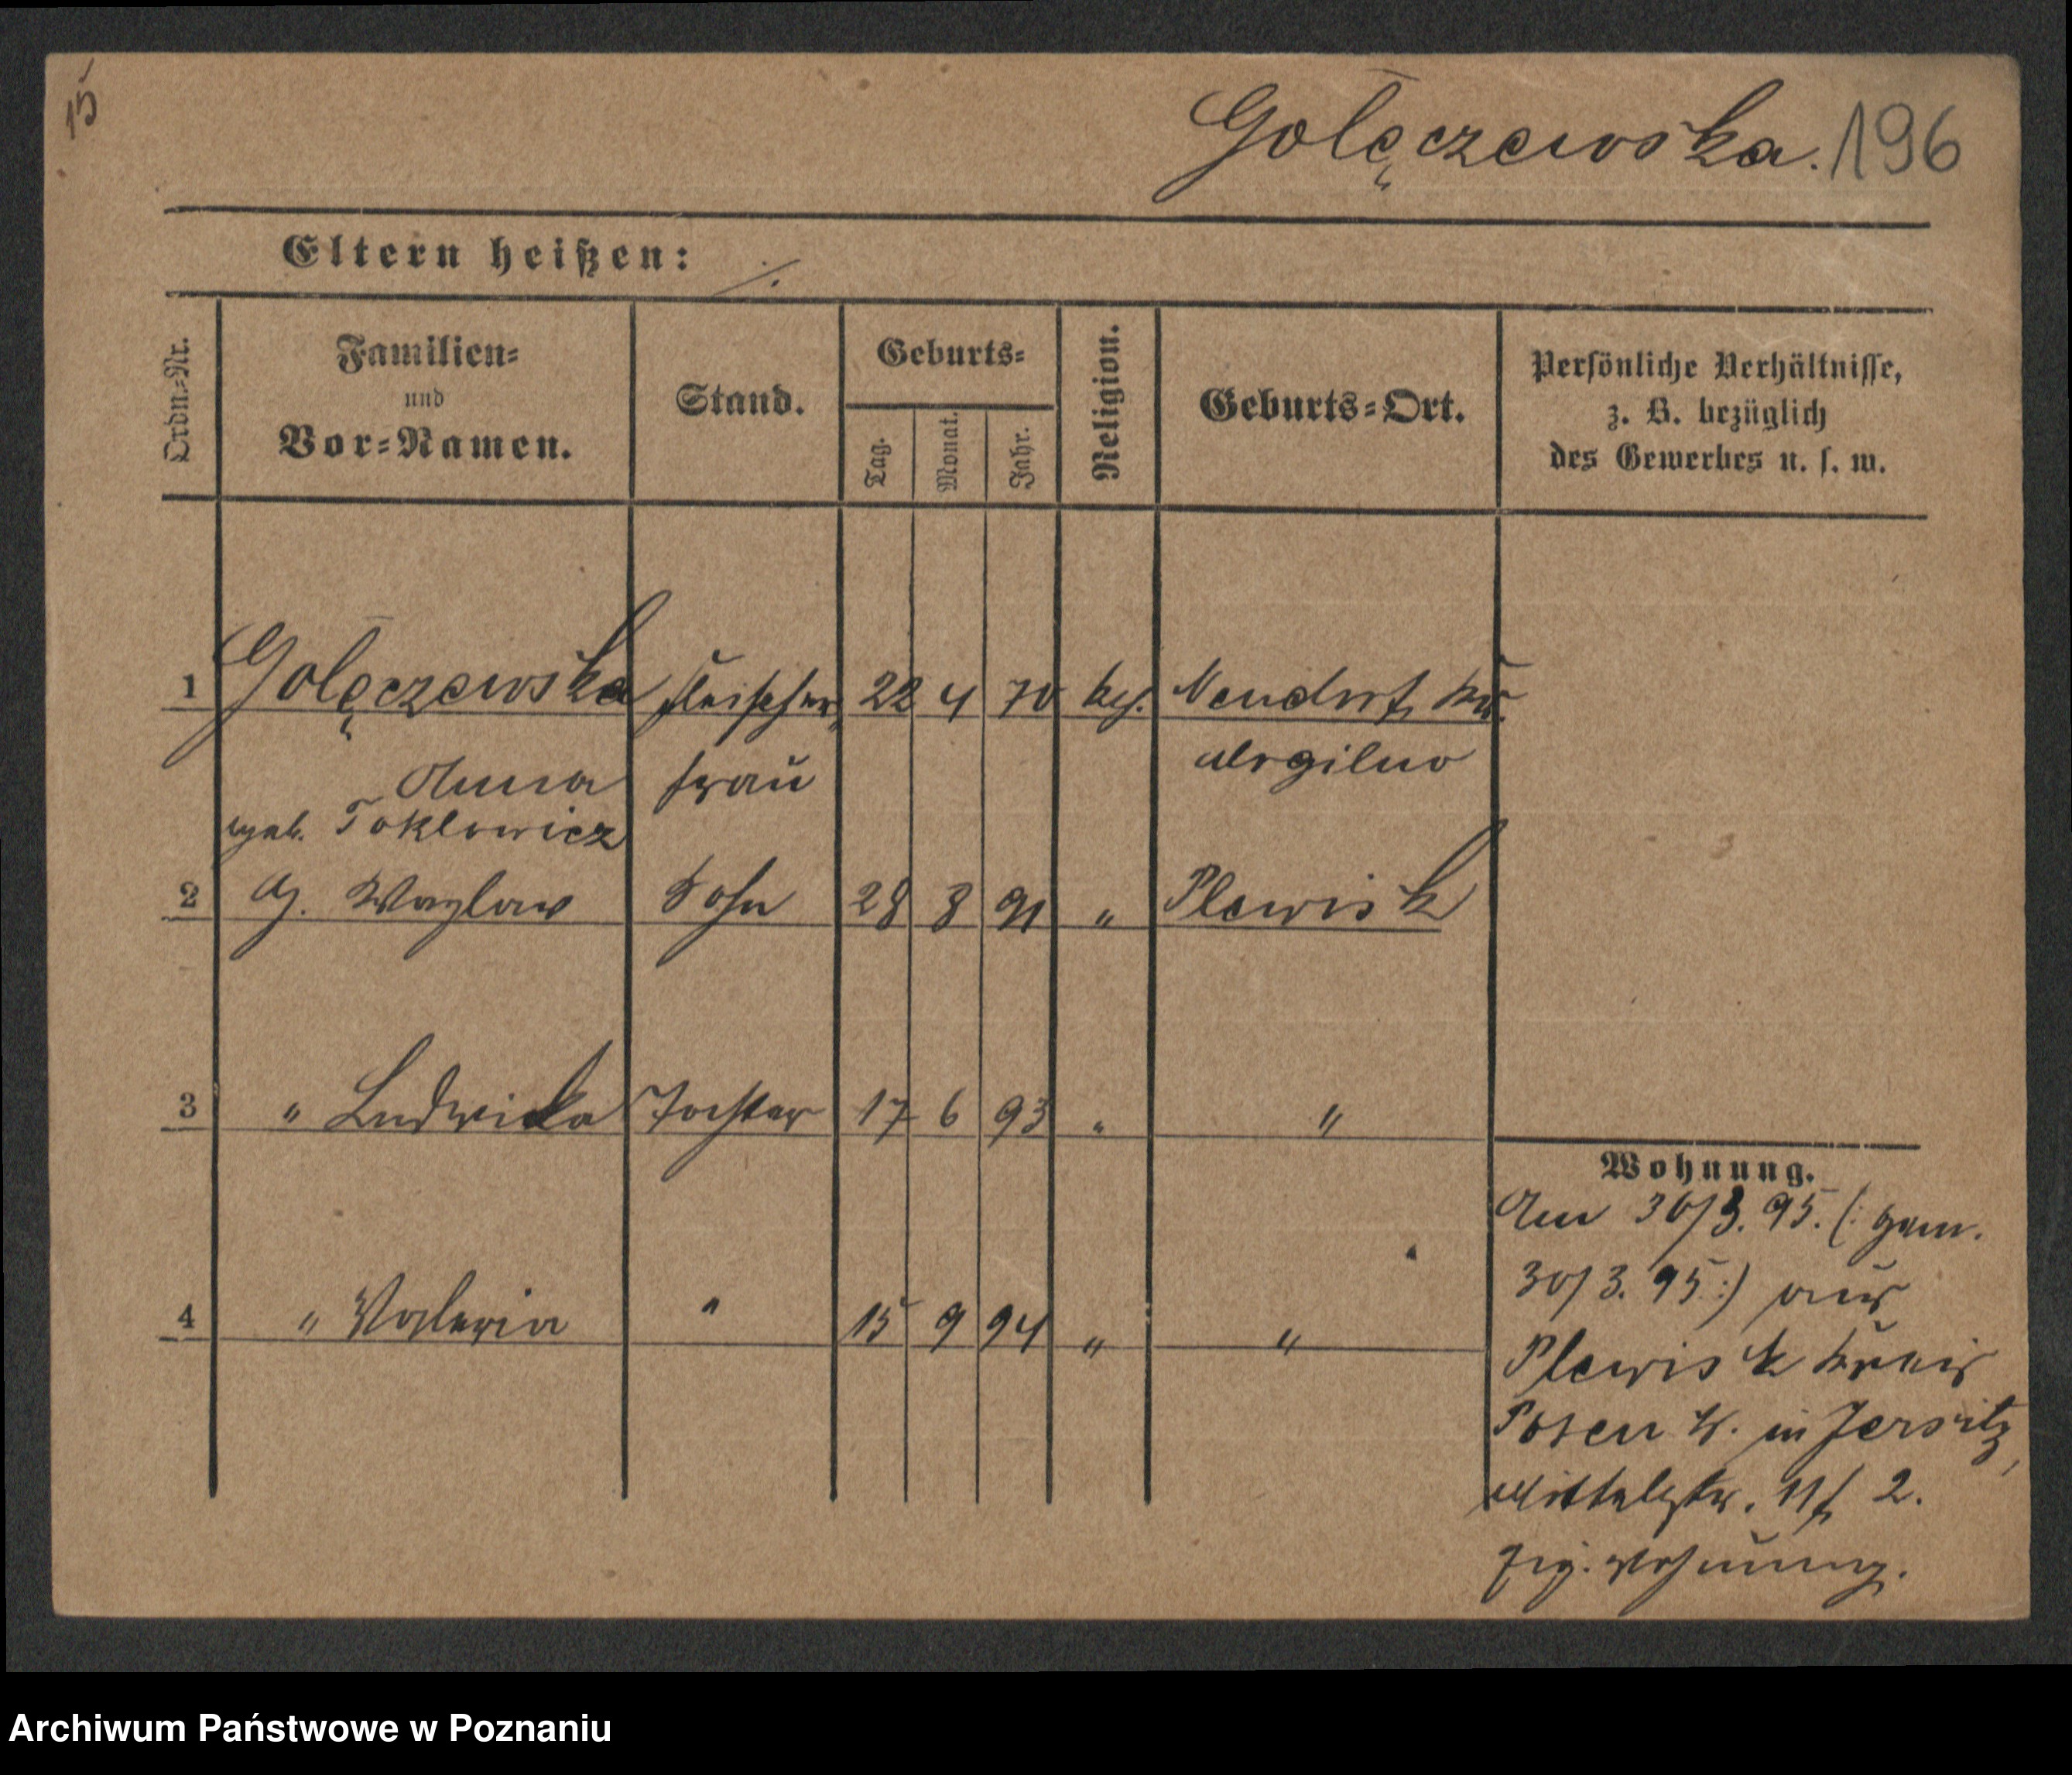 15
Golęczewska. 196
Eltern heißen: ./.
Ordn.-Nr.
Familien-
und
Vor-Namen.
Stand.
Geburts-
Tag.
Monat.
Jahr.
Religion.
Geburts-Ort.
Persönliche Verhältnisse,
z. B. bezüglich
des Gewerbes u. s. w.
1 Golęczewska Fleischer 22 4 70 kth. Neudorf, Kr.
Anna frau Argilno
geb. Toklowicz
2 G. Wazlaw Sohn 28 8 91 " Plewisk
3 " Ludwika Tochter 17 6 93 " "
4 " Valeria " 15 9 94 " "
Wohnung.
Am 30/3. 95. (: gem.
30/3. 95 :) aus
Plewisk Kreis
Posen W. in Jersitz,
Mittelstr. 11, 2.
Wohnung.
Archiwum Państwowe w Poznaniu